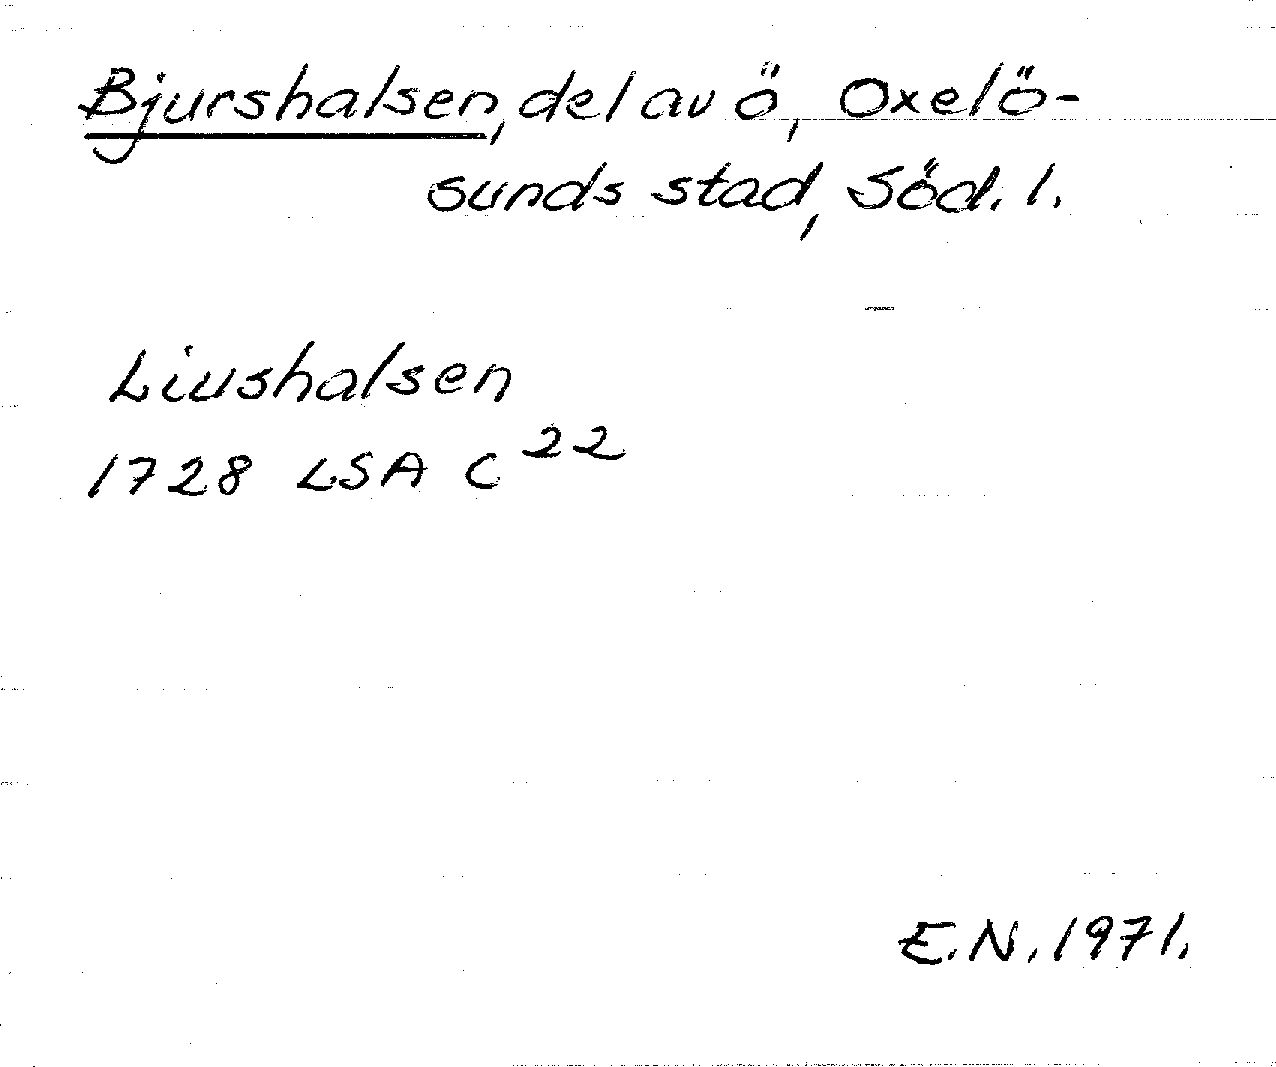 Bjurshalsen, del av ö, Oxelö-
sunds stad, Söd. l.
Liushalsen
1728 LSA C 22
E.N. 1971.